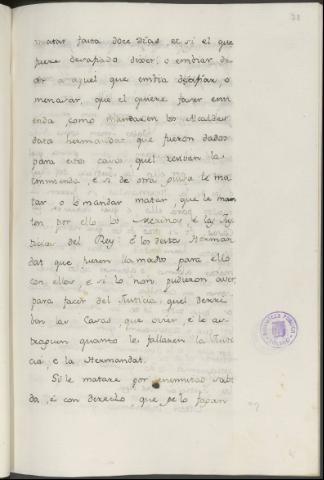 matar faita doce dias, et si el que
fuere desafiado dixer, o embiar de
cir a aquel que embia desafiar, o
menazar, que el quiere facer emi
enda como mandaren los Alcaldes
desta hermandat que fueron dados
para esto casos quel reciban la
emmienda, e si de otra guisa le ma
tar o lo mandar matar, que le maten
por ello los Merinos, e las Jus
ticias del Rey. E los desta Herman
dat que fueren llamados para ello
con ellos, e si lo non pudieren aver
para facer del Justicia, quel derri
ben las Casas, que oviere, e le as
traguen quanto le fallaren la Justi
cia, e la Hermandat.
Si le matare por enemistad sabi
da, e con derecho que se lo fagan